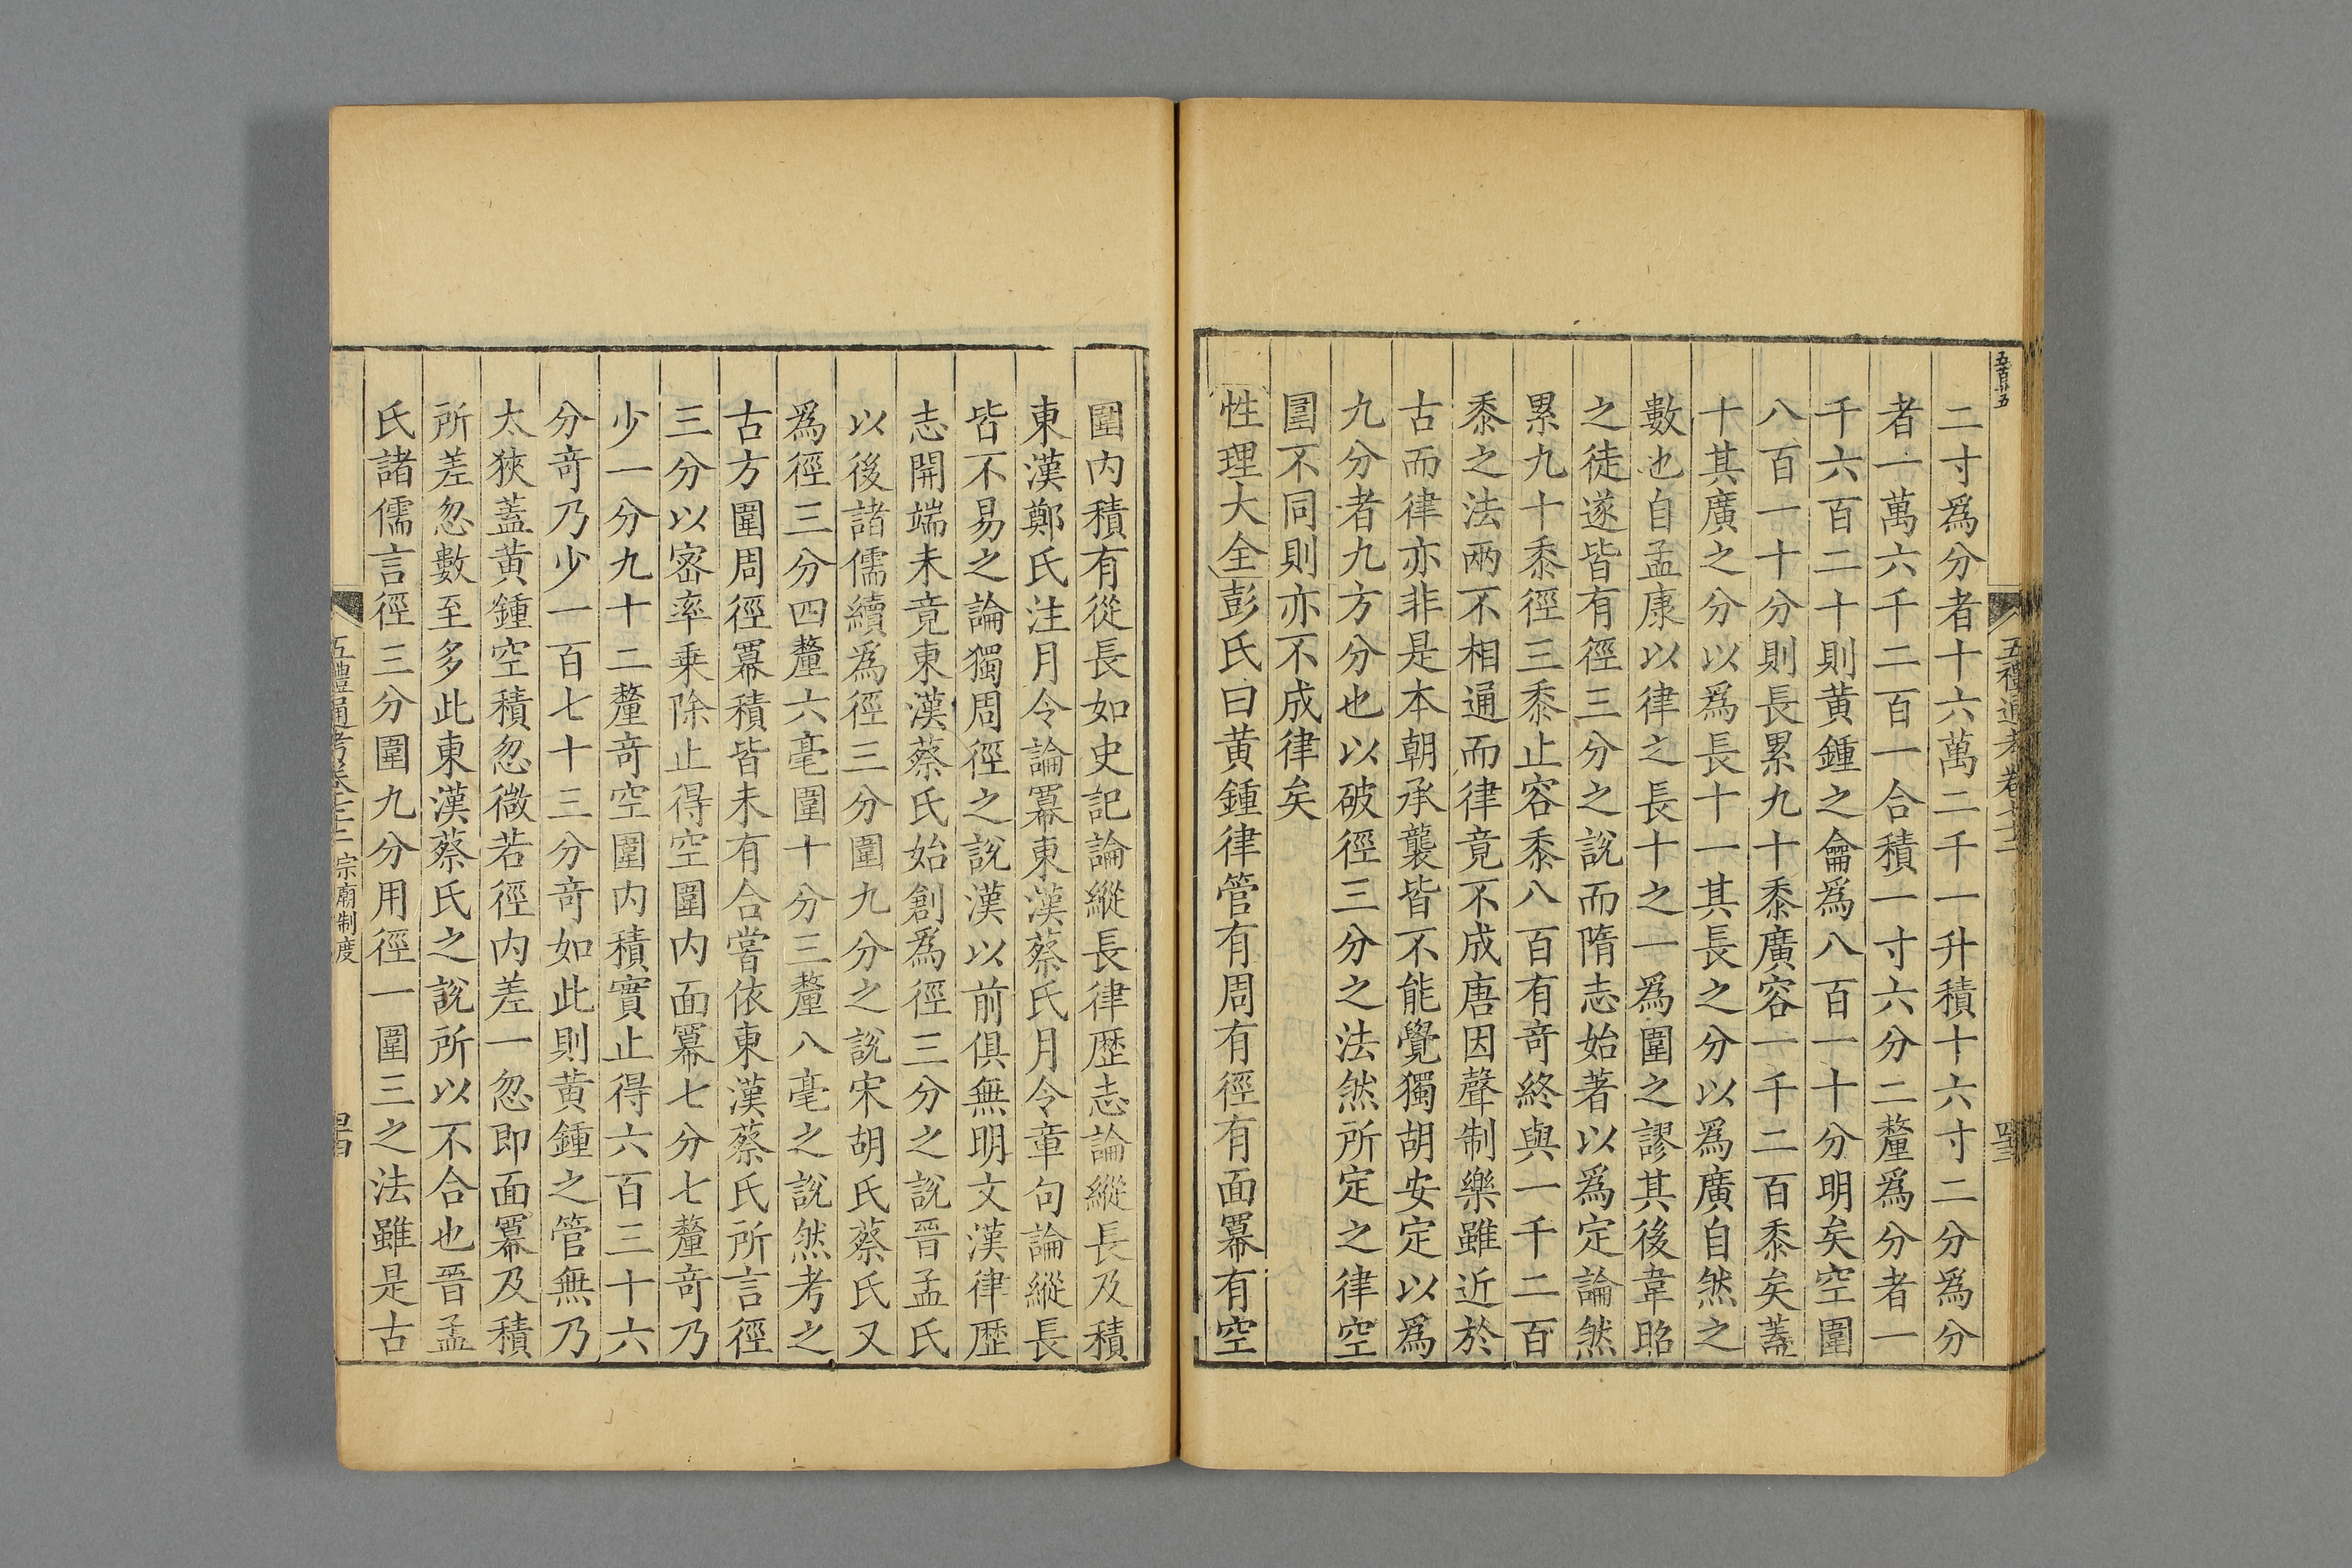 二寸爲分者十六萬二千一升積十六寸二分爲分
者一萬六千二百一合積一寸六分二釐爲分者一
千六百二十則黄鍾之龠爲八百一十分明矣空圍
八百一十分則長累九十黍廣容一千二百黍矣蓋
十其廣之分以爲長十一其長之分以爲廣自然之
數也自孟康以律之長十之一爲圍之謬其後韋昭
之徒遂皆有徑三分之說而隋志始著以爲定論然
累九十黍徑三黍止容黍八百有竒終與一千二百
黍之法兩不相通而律竟不成唐因聲制樂雖近於
古而律亦非是本朝承襲皆不能覺獨胡安定以爲
九分者九方分也以破徑三分之法然所定之律空
圍不同則亦不成律矣
性理大全彭氏曰黄鍾律管有周有徑有面冪有空
圍内積有從長如史記論縱長律歴志論縱長及積
東漢鄭氏注月令論冪東漢蔡氏月令章句論縱長
皆不易之論獨周徑之說漢以前俱無明文漢律歴
志開端未竟東漢蔡氏始創爲徑三分之說晉孟氏
以後諸儒續爲徑三分圍九分之說宋胡氏蔡氏又
爲徑三分四釐六毫圍十分三釐八毫之說然考之
古方圍周徑冪積皆未有合嘗依東漢蔡氏所言徑
三分以密率乗除止得空圍内面冪七分七釐竒乃
少一分九十二釐竒空圍内積實止得六百三十六
分竒乃少一百七十三分竒如此則黄鍾之管無乃
太狹蓋黄鍾空積忽微若徑内差一忽即面冪及積
所差忽數至多此東漢蔡氏之說所以不合也晉孟
氏諸儒言徑三分圍九分用徑一圍三之法雖是古
五禮通考卷七十二 宗廟制度